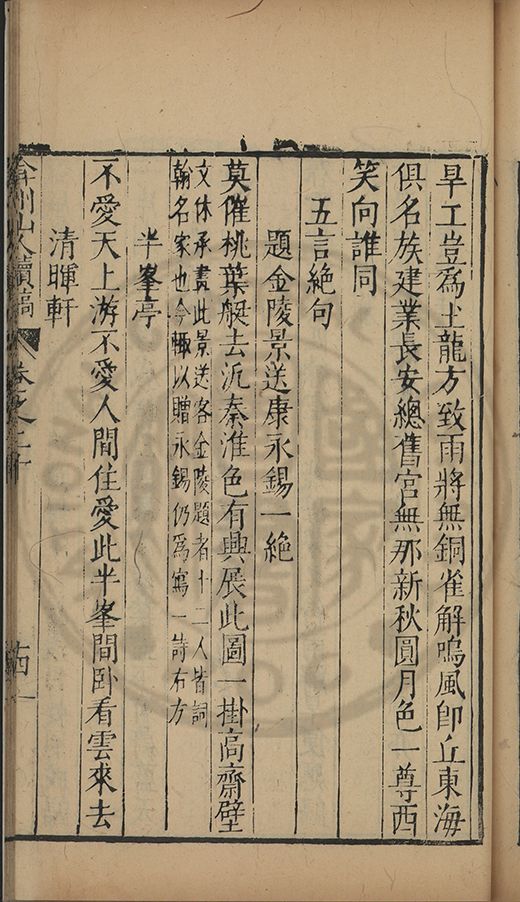 旱工豈爲土龍方致雨將無銅雀解鳴風即丘東海
俱名族建業長安總舊官無那新秋圓月色一尊西
笑向誰同
五言絕句
題金陵景送康永錫一絕
莫催桃葉艇去泝秦淮色有興展此圖一掛高齋壁
文休承畫此景送客金陵題者十二人皆詞
翰名家也今輒以贈永錫仍爲寫一詩右方
半峯亭
不愛天上游不愛人間住愛此半峯間臥看雲來去
清暉軒
弇州山人續稿 卷之二十 十四